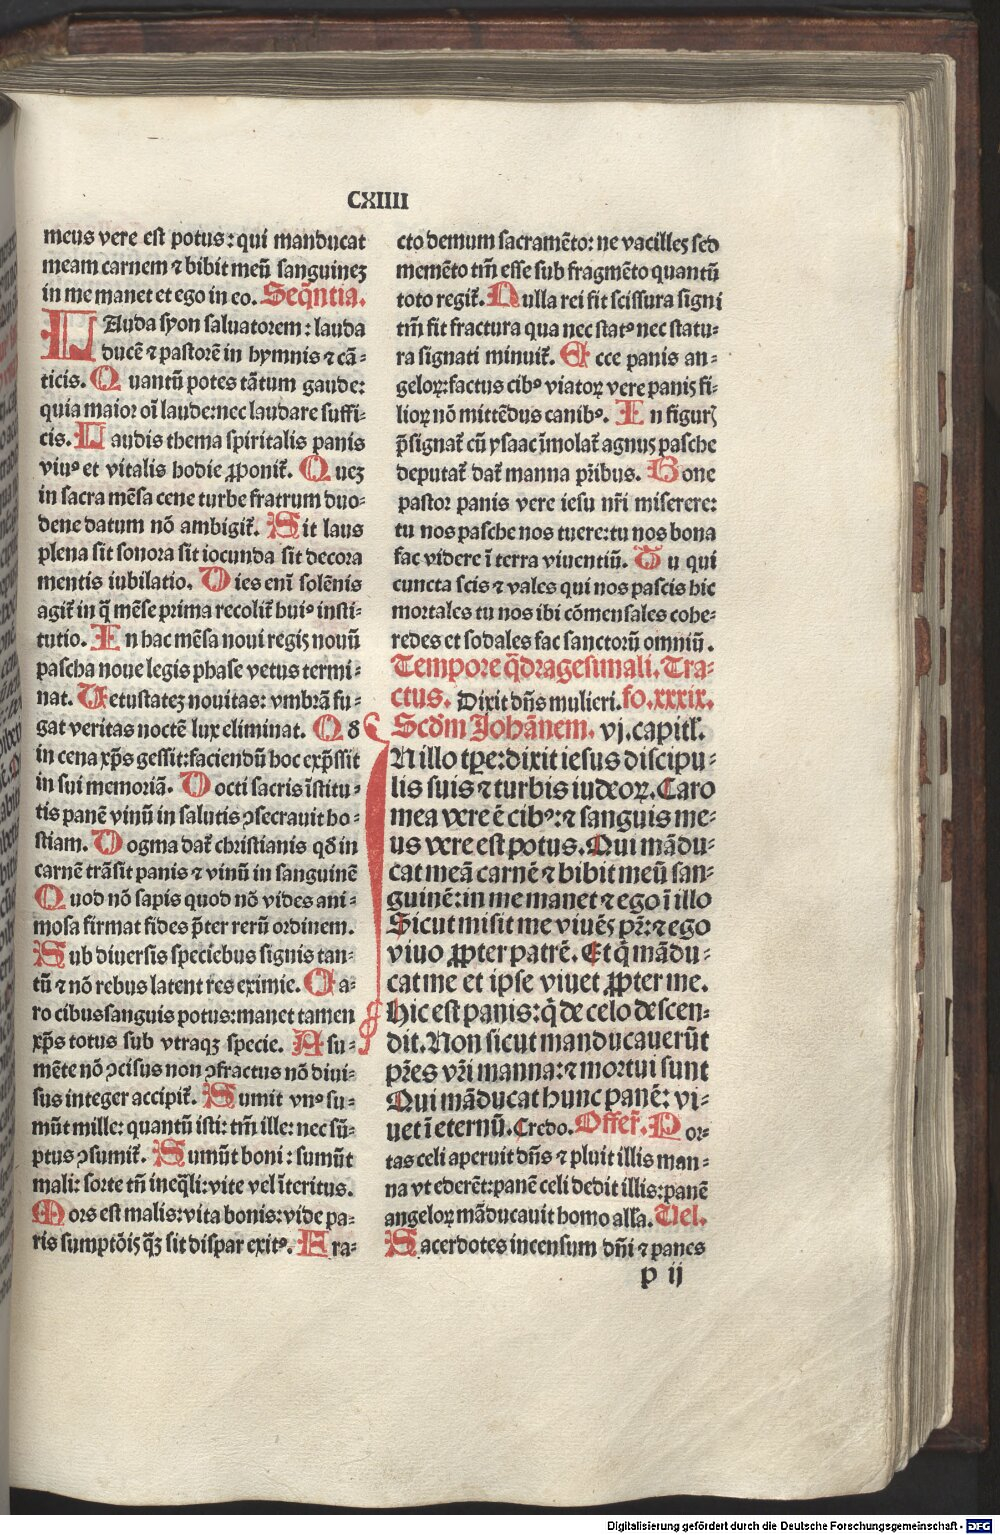 CXIIII
meus vere est potus: qui manducat
meam carnem ⁊ bibit meū sanguineꝫ
in me manet et ego in eo. Seqn̄tia.
LAuda syon saluatorem: lauda
ducē ⁊ pastorē in hymnis ⁊ cā-
ticis. Quantū potes tātum gaude:
quia maior oī laude: nec laudare suffi-
cis. Laudis thema spiritalis panis
viuꝰ et vitalis hodie ꝓponit᷑. Queꝫ
in sacra mēsa cene turbe fratrum duo-
dene datum nō ambigit᷑. Sit laus
plena sit sonora sit iocunda sit decora
mentis iubilatio. Dies enī solēnis
agit᷑ in q̄ mēse prima recolit᷑ huiꝰ insti-
tutio. En hac mēsa noui regiꝭ nouū
pascha noue legis phase vetus termi-
nat. Uetustateꝫ nouitas: vmbrā fu-
gat veritas noctē lux eliminat. Qd
in cena xp̄s gessit: faciendū hoc exp̄ssit
in sui memoriā. Docti sacris īstitu-
tis panē vinū in salutis ꝯsecrauit ho-
stiam. Dogma dat᷑ christianis qd in
carnē trāsit panis ⁊ vinū in sanguinē
Quod nō sapis quod nō vides ani-
mosa firmat fides p̄ter rerū ordinem.
Sub diuersis speciebus signis tan-
tū ⁊ nō rebus latent res eximie. Ca-
ro cibus sanguis potus: manet tamen
xp̄s totus sub vtraqꝫ specie. A su-
mēte nō ꝯcisus non ꝯfractus nō diui-
sus integer accipit᷑. Sumit vnꝰ su-
mūt mille: quantū isti: tm̄ ille: nec sū-
ptus ꝯsumit᷑. Sumūt boni: sumūt
mali: sorte tn̄ ineq̄li: vite vel īteritus.
Mors est malis: vita bonis: vide pa-
ris sumptōiꝭ qꝫ̄ sit dispar exitꝰ. Fra-
cto demum sacramēto: ne vacilleꝭ sed
memēto tm̄ esse sub fragmēto quantū
toto tegit᷑. Nulla rei fit scissura signi
tm̄ fit fractura qua nec statꝰ nec statu-
ra signati minuit᷑. Ecce panis an-
geloꝝ: factus cibꝰ viatoꝝ vere paniꝭ fi-
lioꝝ nō mittēdus canibꝰ. En figurꝭ
p̄signat᷑ cū ysaac īmolat᷑ agnuꝭ pasche
deputat᷑ dat᷑ manna pr̄ibus. Bone
pastor panis vere iesu nr̄i miserere:
tu nos pasche nos tuere: tu nos bona
fac videre ī terra viuentiū. Tu qui
cuncta scis ⁊ vales qui nos pascis hic
mortales tu nos ibi cōmensales cohe-
redes et sodales fac sanctorū omniū.
Tempore q̄dragesimali. Tra-
ctus. Dixit dn̄s mulieri. fo. xxxix.
Scdm̄ Johānem. vj. capitl᷑.
IN illo tp̄e: dixit iesus discipu-
lis suis ⁊ turbis iudeoꝝ. Caro
mea vere ē cibꝰ: ⁊ sanguis me-
us vere est potus. Qui mādu-
cat meā carnē ⁊ bibit meū san-
guinē: in me manet ⁊ ego ī illo
Sicut misit me viuēs pr̄: ⁊ ego
viuo ꝓpter patrē. Et q̄ mādu-
cat me et ipse viuet ꝓpter me.
Hic est panis: q̄ de celo descen-
dit. Non sicut manducauerūt
pr̄es vr̄i manna: ⁊ mortui sunt
Qui māducat hunc panē: vi-
uet ī eternū. Credo. Offer᷑. Por-
tas celi aperuit dn̄s ⁊ pluit illis man-
na vt ederēt: panē celi dedit illis: panē
angeloꝝ māducauit homo all'a. Uel.
Sacerdotes incensum dn̄i ⁊ panes
p ij
Digitalisierung gefördert durch die Deutsche Forschungsgemeinschaft - DFG